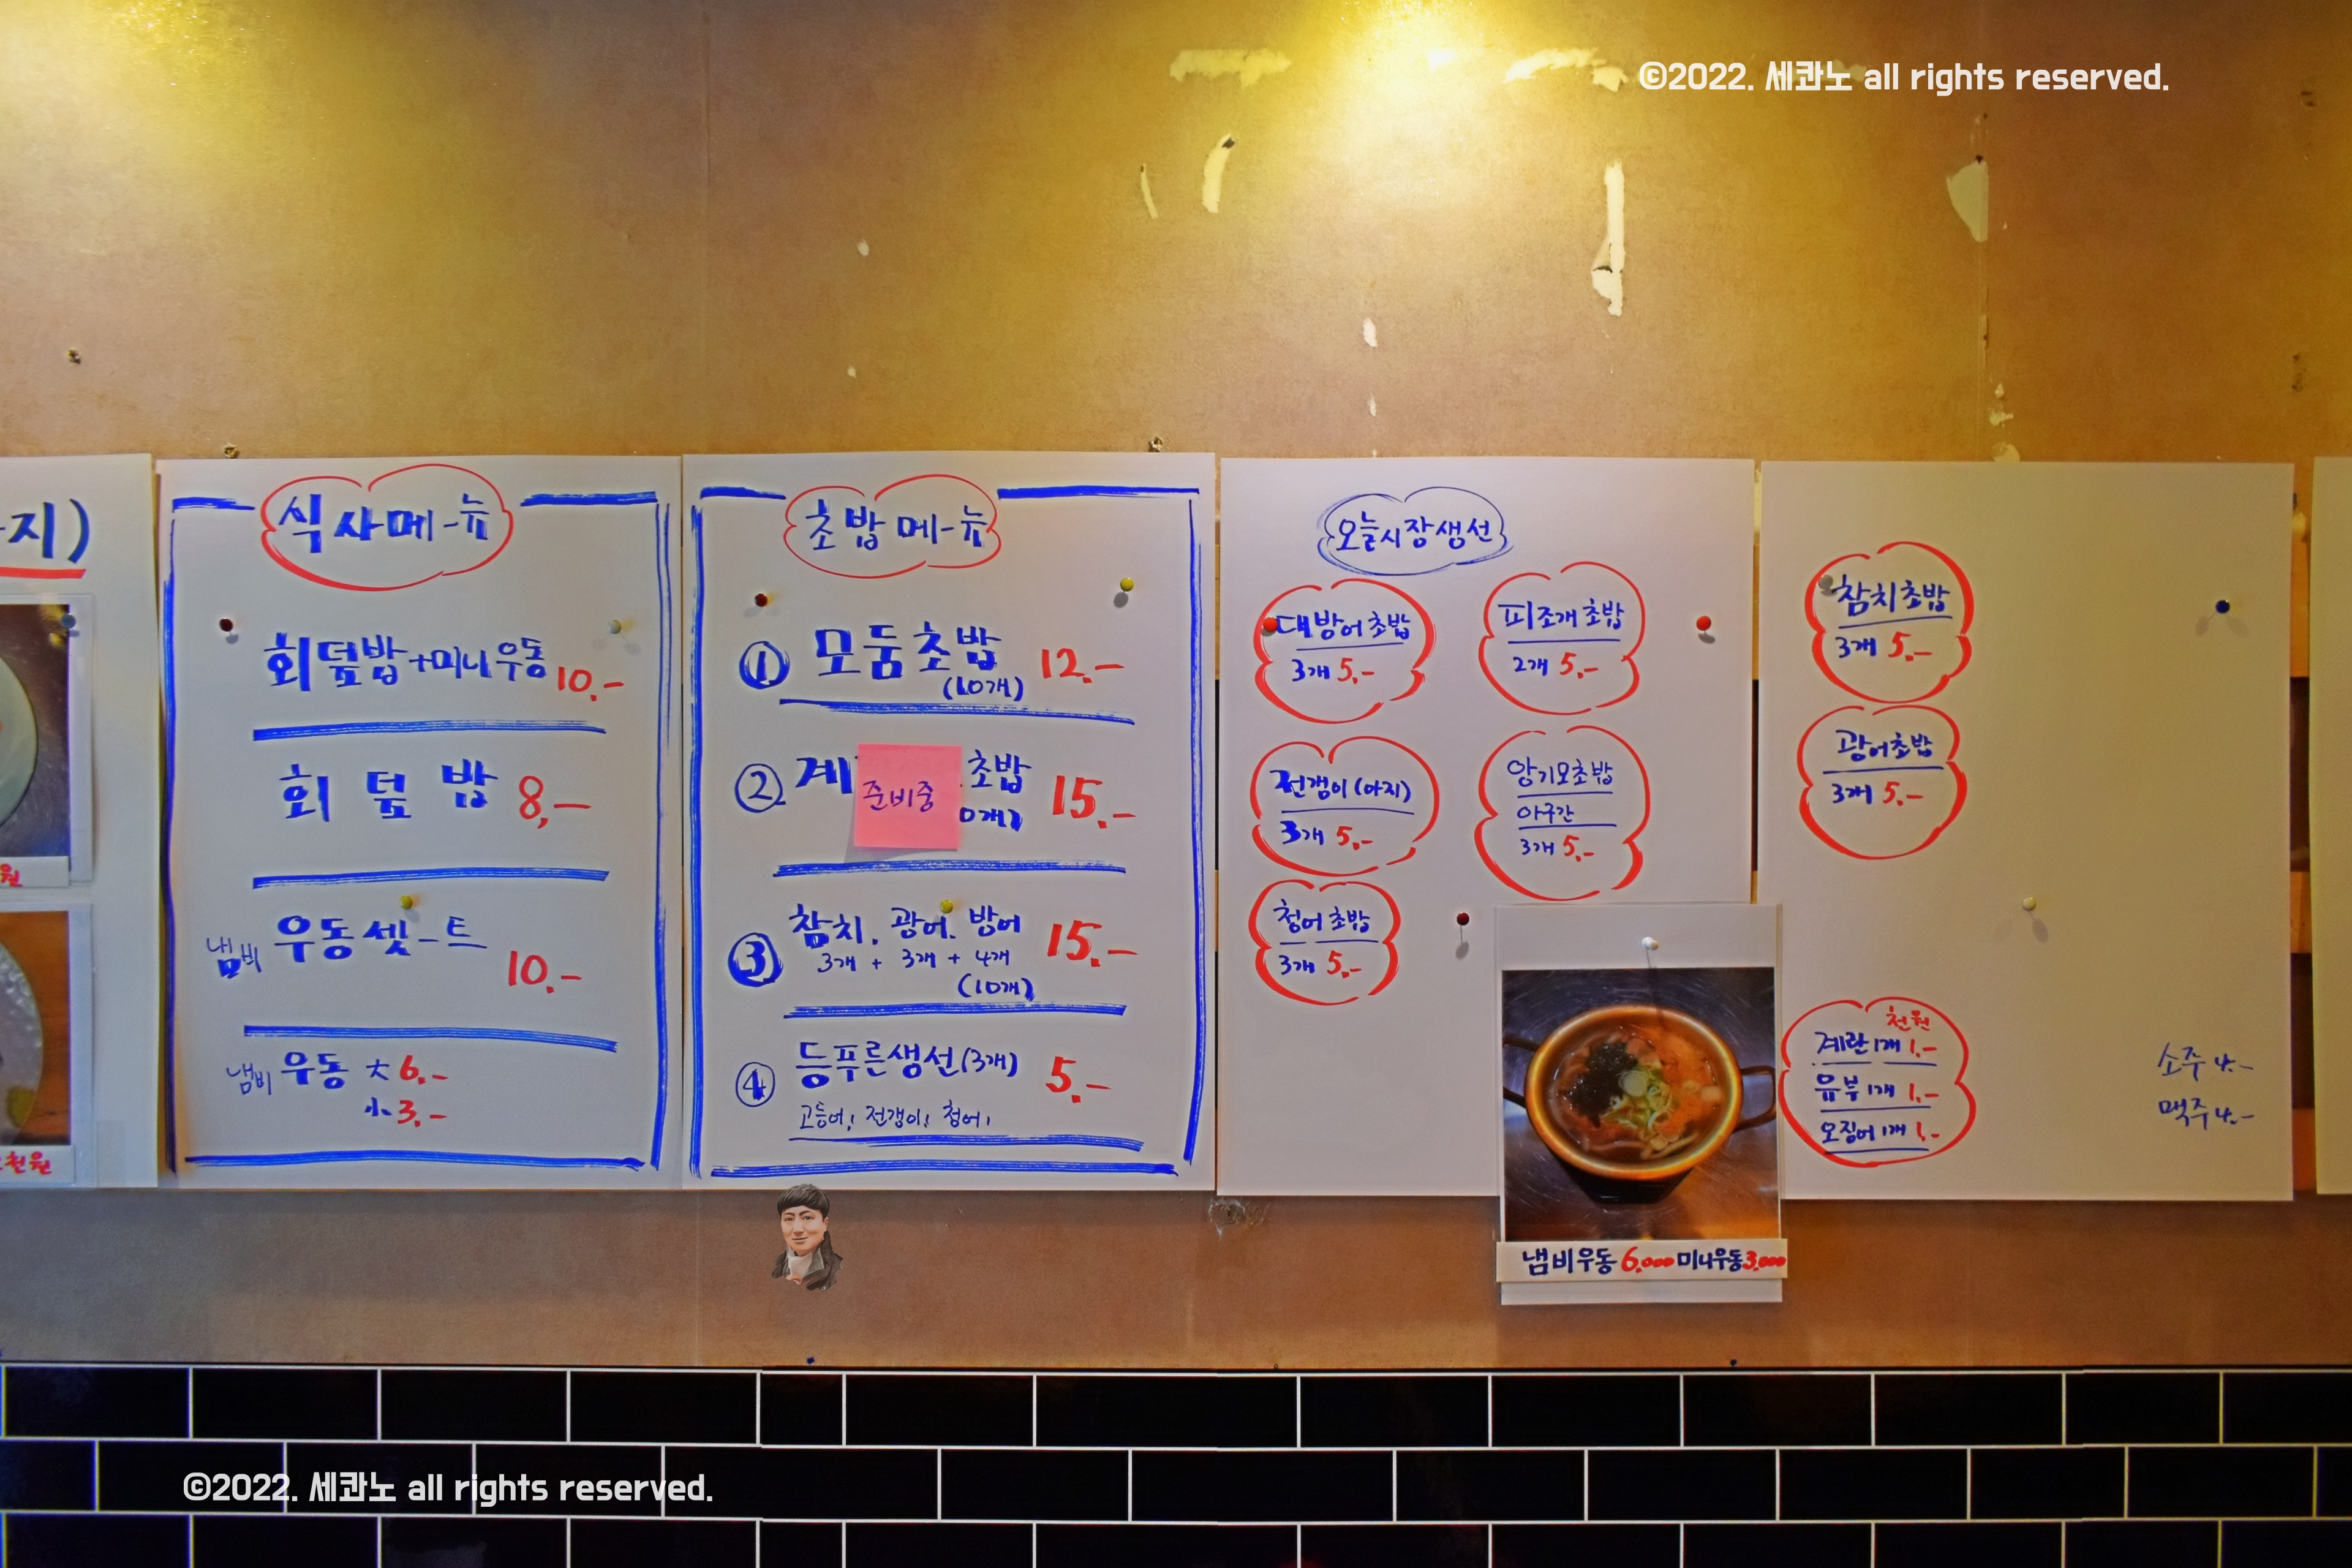 ©2022. 세콴노 all rights reserved.
지)
원
천원
식사메-뉴
회덮밥+미니우동 10.-
회 덮 밥 8,-
냄비 우동셋-트 10.-
냄비 우동 大 6.-
小 3.-
초밥 메-뉴
① 모둠초밥 12.-
(10개)
② 계 초밥 15.-
준비중
0개)
③ 참치. 광어. 방어 15.-
3개 + 3개 + 4개
(10개)
④ 등푸른생선(3개) 5.-
고등어! 전갱이! 청어!
오늘시장생선
대방어초밥
3개 5.-
피조개초밥
2개 5.-
전갱이(아지)
3개 5.-
앙기모초밥
아구간
3개 5.-
청어초밥
3개 5.-
참치초밥
3개 5.-
광어초밥
3개 5.-
천원
계란 1개 1.-
유부 1개 1.-
오징어 1개 1.-
소주 4.-
맥주 4.-
냄비우동 6,000 미니우동 3,000
©2022. 세콴노 all rights reserved.